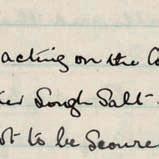 acting on the Co
Lough Salt
ot to be Secure